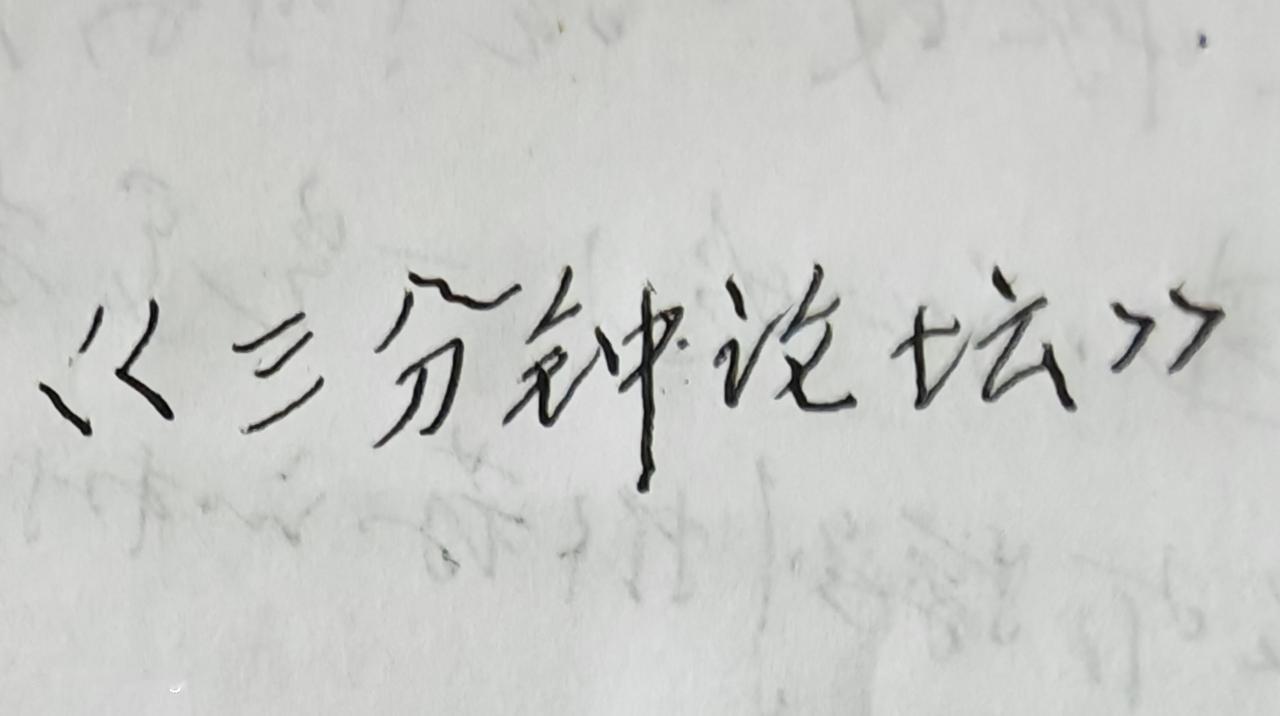 《三分钟论坛》